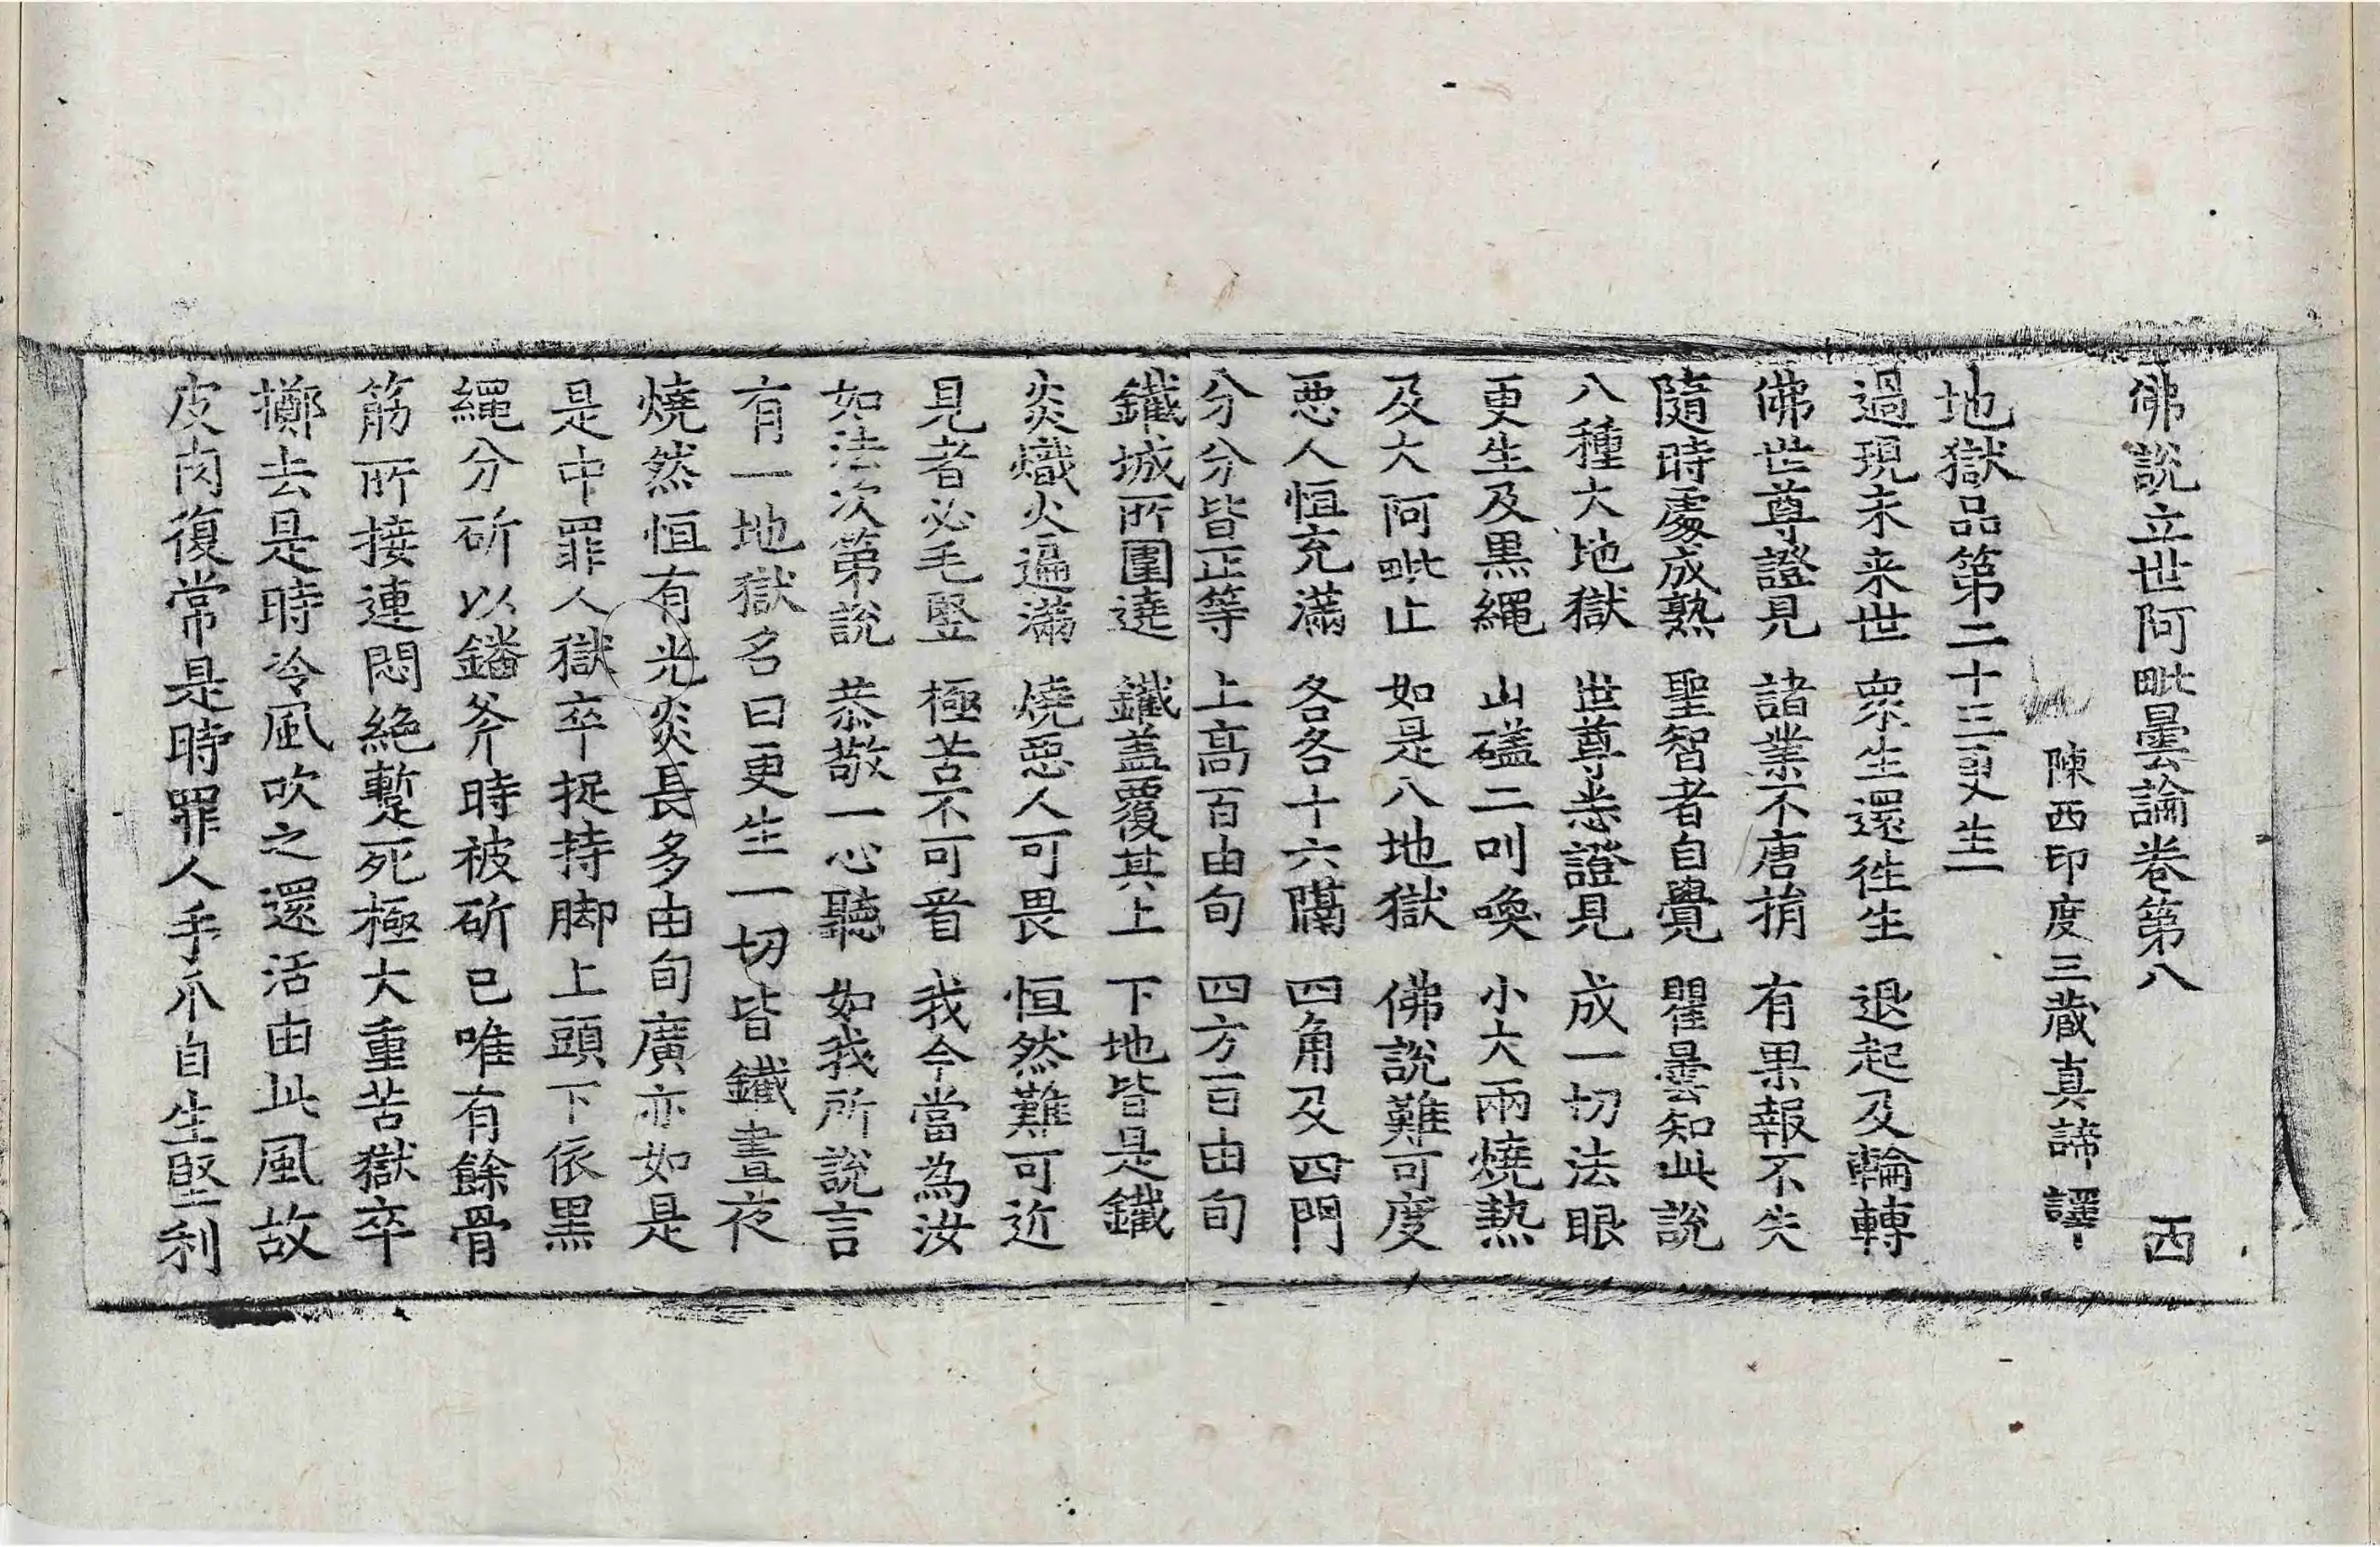 佛說立世阿毗曇論卷第八 西
陳西印度三藏真諦 譯
地獄品第二十三更生一
過現未来世 衆生還徃生 退起及輪轉
佛世尊證見 諸業不唐捐 有果報不失
隨時處成熟 聖智者自覺 瞿曇知此說
八種大地獄 世尊悉證見 成一切法眼
更生及黒繩 山磕二叫喚 小大兩燒熱
及大阿毗止 如是八地獄 佛說難可度
惡人恒充滿 各各十六隔 四角及四門
分分皆正等 上高百由旬 四方百由旬
鐵城所圍遶 鐵盖覆其上 下地皆是鐵
炎熾火遍滿 燒惡人可畏 恒然難可近
見者必毛竪 極苦不可看 我今當為汝
如法次第說 恭敬一心聽 如我所說言
有一地獄名曰更生一切皆鐵晝夜
燒然恒有光炎長多由旬廣亦如是
是中罪人獄卒捉持脚上頭下依黒
繩分斫以鐇斧時被斫已唯有餘骨
筋所接連悶絶蹔死極大重苦獄卒
擲去是時冷風吹之還活由此風故
皮肉復常是時罪人手爪自生堅利